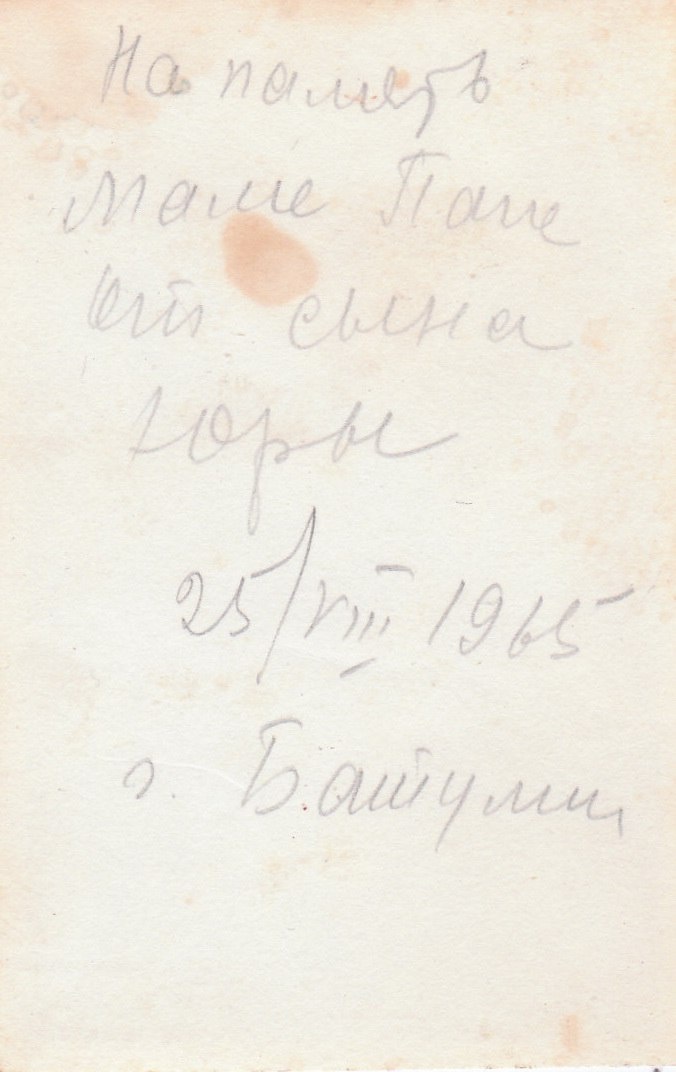 На память
маме Папе
от сына
Юры
25/VIII 1965
г. Батуми